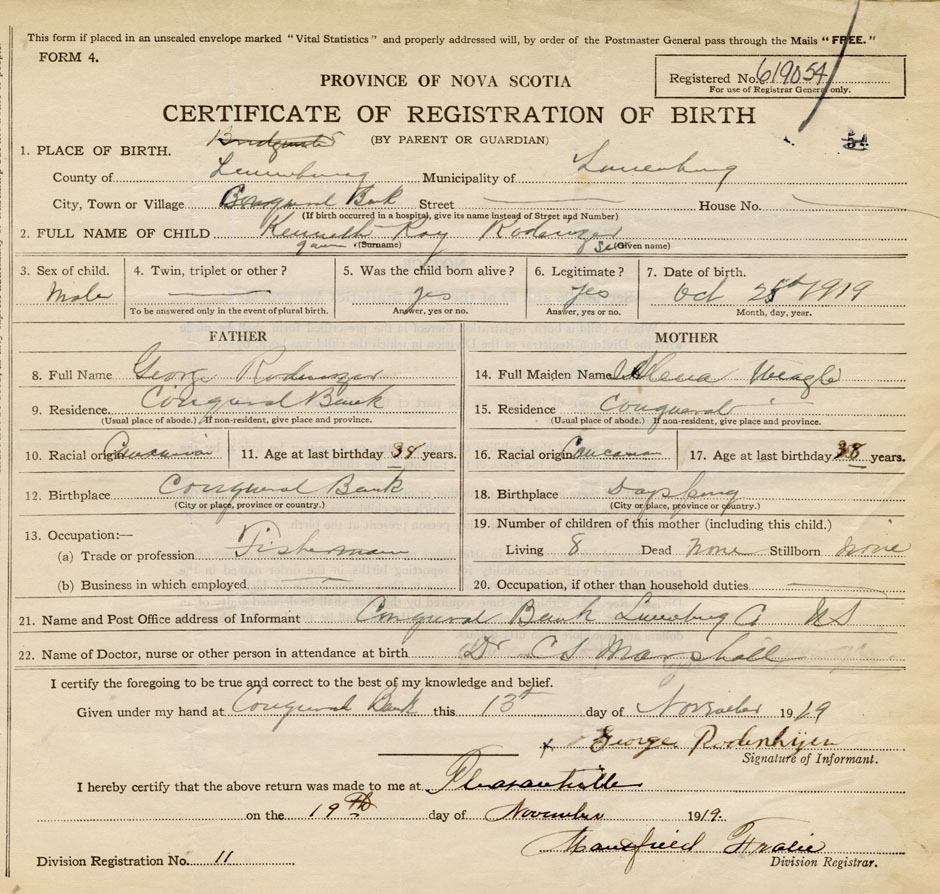 This form if placed in an unsealed envelope marked "Vital Statistics" and properly addressed will, by order of the Postmaster General pass through the Mails "FREE."
FORM 4.
Registered No. 619054
For use of Registrar General only.
PROVINCE OF NOVA SCOTIA
CERTIFICATE OF REGISTRATION OF BIRTH
(BY PARENT OR GUARDIAN)
54
1. PLACE OF BIRTH. Bridgewater
County of Lunenburg Municipality of Lunenburg
City, Town or Village Conqueral Bank Street House No.
(If birth occurred in a hospital, give its name instead of Street and Number)
2. FULL NAME OF CHILD Kenneth Roy
(Surname) (Given name)
3. Sex of child. 4. Twin, triplet or other? 5. Was the child born alive? 6. Legitimate? 7. Date of birth.
Male yes yes Oct 25th 1919
To be answered only in the event of plural birth. Answer, yes or no. Answer, yes or no. Month, day, year.
FATHER MOTHER
8. Full Name George 14. Full Maiden Name Weagle
9. Residence Conqueral Bank 15. Residence Conqueral
(Usual place of abode.) If non-resident, give place and province. (Usual place of abode.) If non-resident, give place and province.
10. Racial origin 11. Age at last birthday years. 16. Racial origin 17. Age at last birthday 38 years.
12. Birthplace Conqueral Bank 18. Birthplace
(City or place, province or country.) (City or place, province or country.)
13. Occupation:— 19. Number of children of this mother (including this child.)
(a) Trade or profession Fisherman Living 8 Dead None Stillborn None
(b) Business in which employed 20. Occupation, if other than household duties
21. Name and Post Office address of Informant Conqueral Bank Lunenburg Co NS
22. Name of Doctor, nurse or other person in attendance at birth Dr C S Marshall
I certify the foregoing to be true and correct to the best of my knowledge and belief.
Given under my hand at Conqueral Bank this 13th day of November 1919
x George Rodenhizer
Signature of Informant.
I hereby certify that the above return was made to me at Pleasantville
on the 19th day of November 1919.
Mansfield
Division Registration No. 11 Division Registrar.